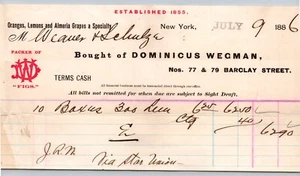 ESTABLISHED 1855.
Oranges, Lemons and Almeria Grapes a Specialty.
New York, JULY 9 1886
M Weaver & Schulze
Bought of DOMINICUS WEGMAN,
PACKER OF
DW
"FIGS."
Nos. 77 & 79 BARCLAY STREET.
TERMS CASH
All bills not remitted for when due are subject to Sight Draft.
10 Boxes 300 Lem 6 25 62 50
Ctg 40 62 90
E
J.R.M. Via Star Union